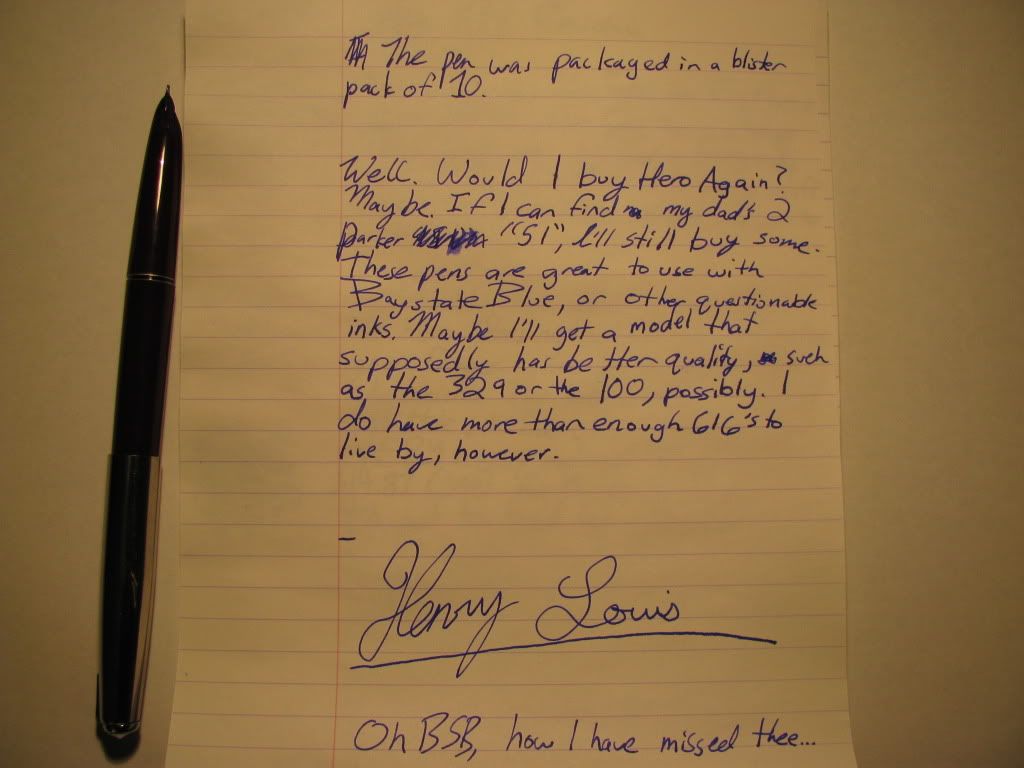 The pen was packaged in a blister
pack of 10.
Well. Would I buy Hero Again?
Maybe. If I can find my dad's 2
parker "51", I'll still buy some.
These pens are great to use with
Baystate Blue, or other questionable
inks. Maybe I'll get a model that
supposedly has better quality, such
as the 329 or the 100, possibly. I
do have more than enough 616's to
live by, however.
-
Henry Louis
Oh BSB, how I have missed thee...